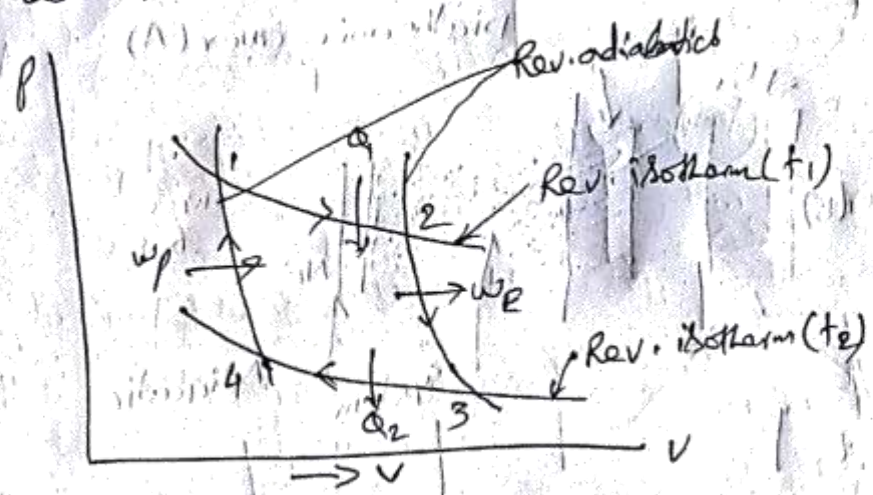 P
Rev. adiabatics
Q1
1
Rev. isotherm (t1)
2
Wp
WE
Rev. isotherm (t2)
4
Q2
3
V
→ V